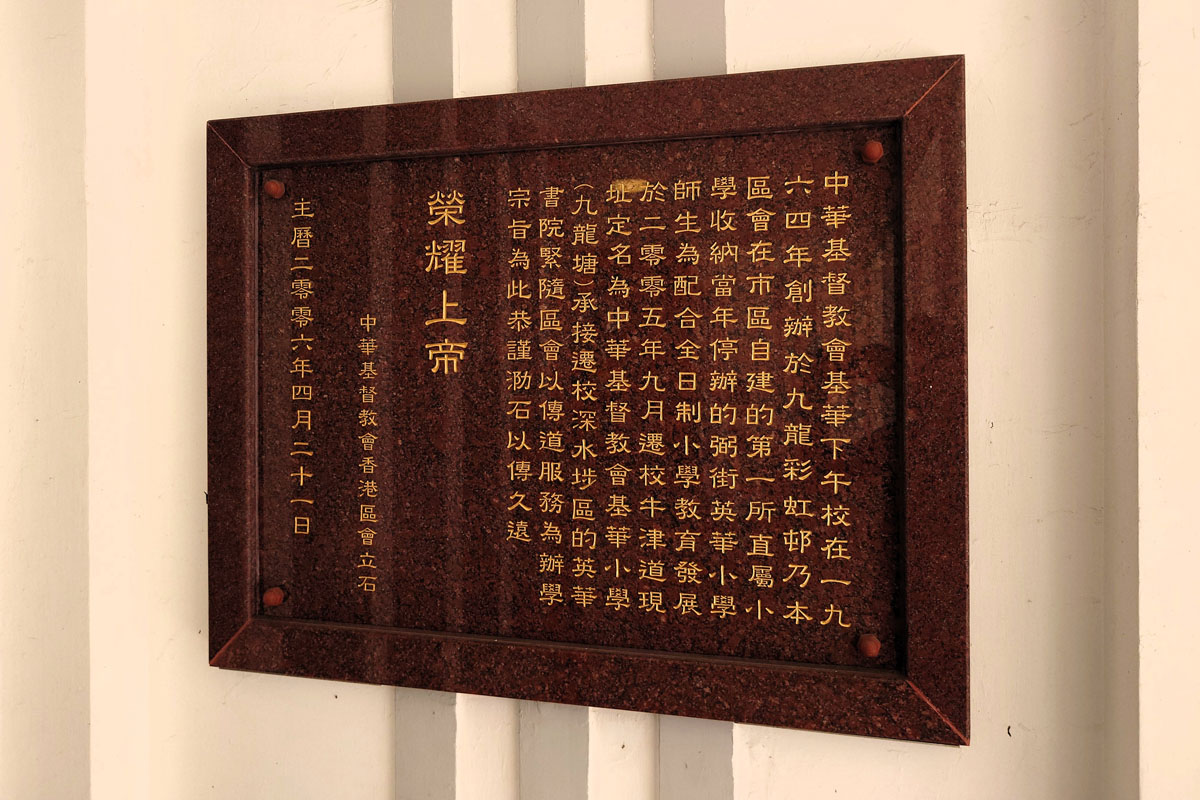 中華基督教會基華下午校在一九
六四年創辦於九龍彩虹邨乃本
區會在市區自建的第一所直屬小
學收納當年停辦的弼街英華小學
師生為配合全日制小學教育發展
於二零零五年九月遷校牛津道現
址定名為中華基督教會基華小學
（九龍塘）承接遷校深水埗區的英華
書院緊隨區會以傳道服務為辦學
宗旨為此恭謹泐石以傳久遠
榮耀上帝
中華基督教會香港區會立石
主曆二零零六年四月二十一日